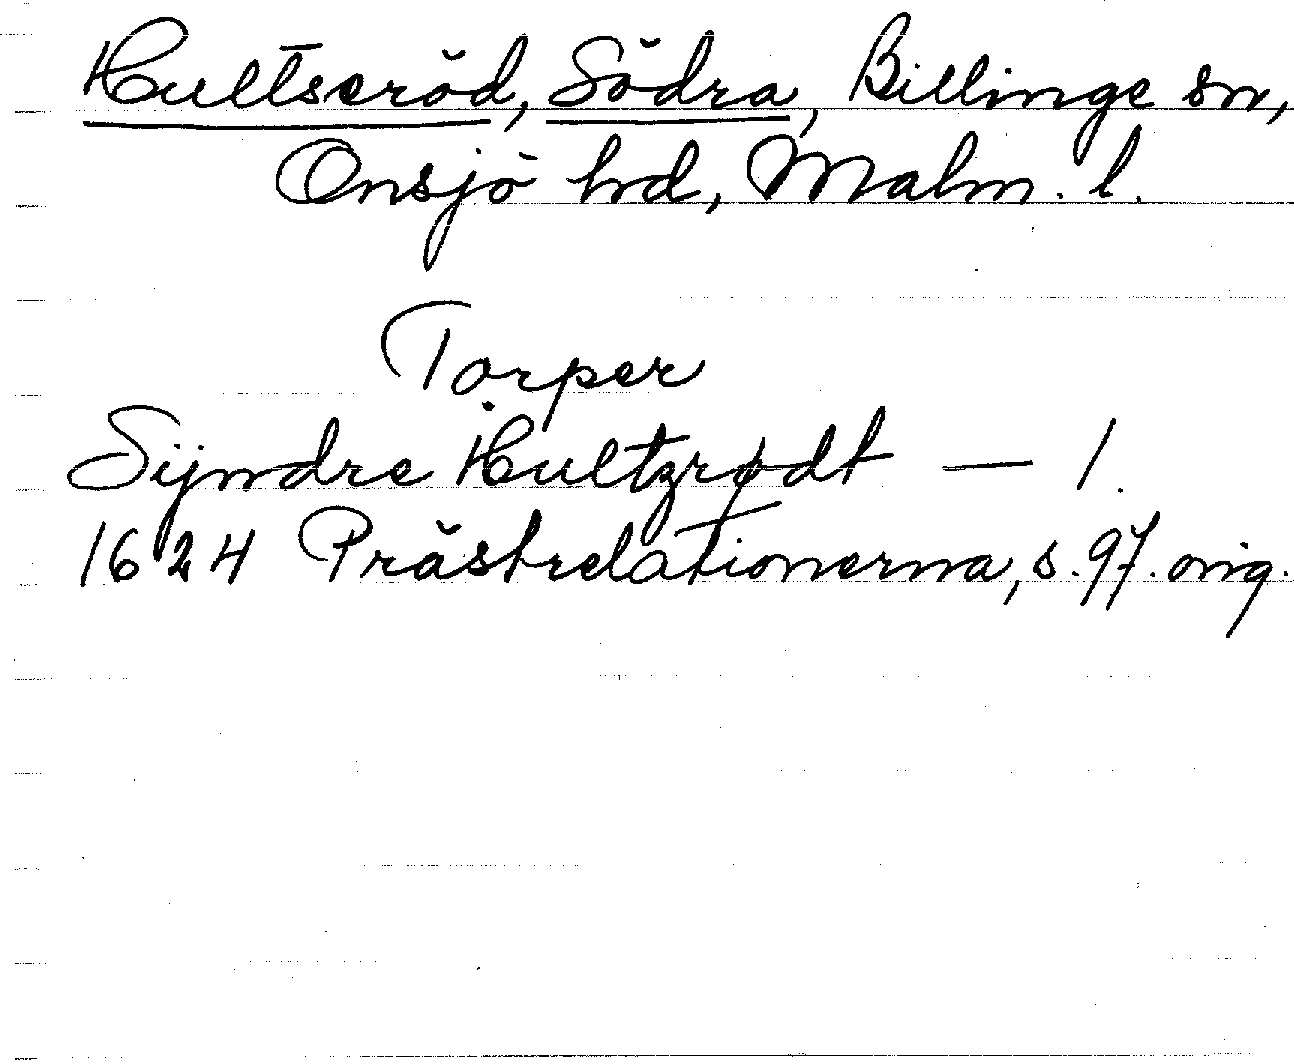 Hultseröd, Södra, Billinge sn,
Onsjö hd, Malm. l.
Torper
Sÿndre Hultzrødt — 1.
1624 Prästrelationerna, s. 97. orig.